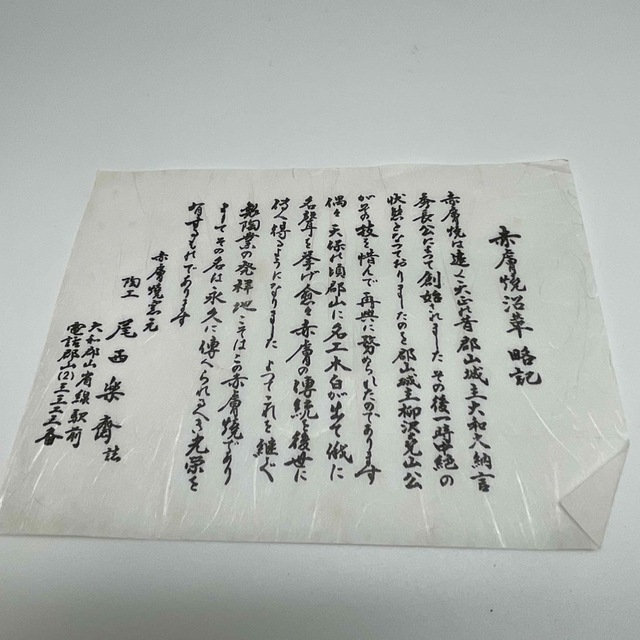 赤膚焼沿革略記
赤膚焼は遠く天正の昔郡山城主大和大納言
秀長公によって創始されましたその後一時中絶の
状態となって居りましたのを郡山城主柳沢尭山公
がその技を惜んで再興に努められたのであります
偶々天保の頃郡山に名工木白が出て俄に
名聲を挙げ愈々赤膚の傳統を後世に
得るようになりました よってこれを継ぐ
製陶業の発祥地こそはこの赤膚焼であり
ましてその名は永久に傳へられるべき光栄を
有するものであります
赤膚焼窯元
陶工 尾西楽斎 誌
大和郡山省線駅前
電話郡山(2)三三三三番